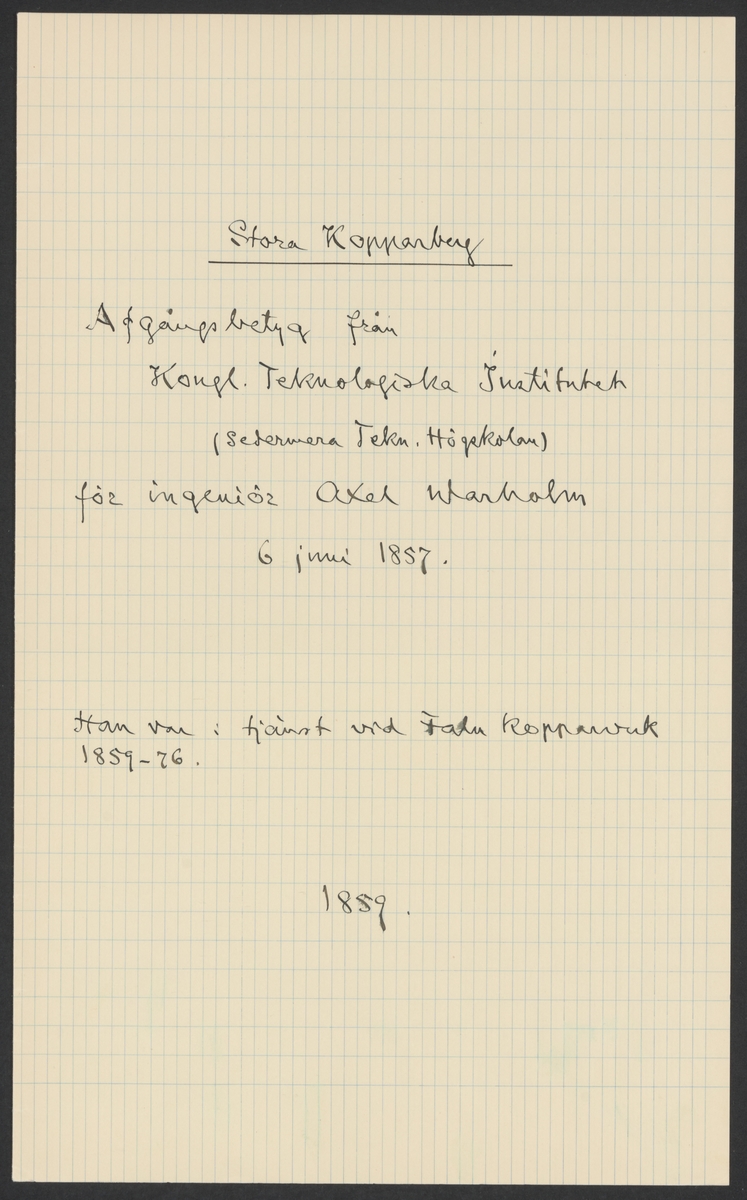 Stora Kopparberg
Afgångsbetyg från
Kongl. Teknologiska Institutet
(Sedermera Tekn. Högskolan)
för ingeniör Axel Warholm
6 juni 1857.
Han var i tjänst vid Falu Kopparverk
1859-76.
1859.